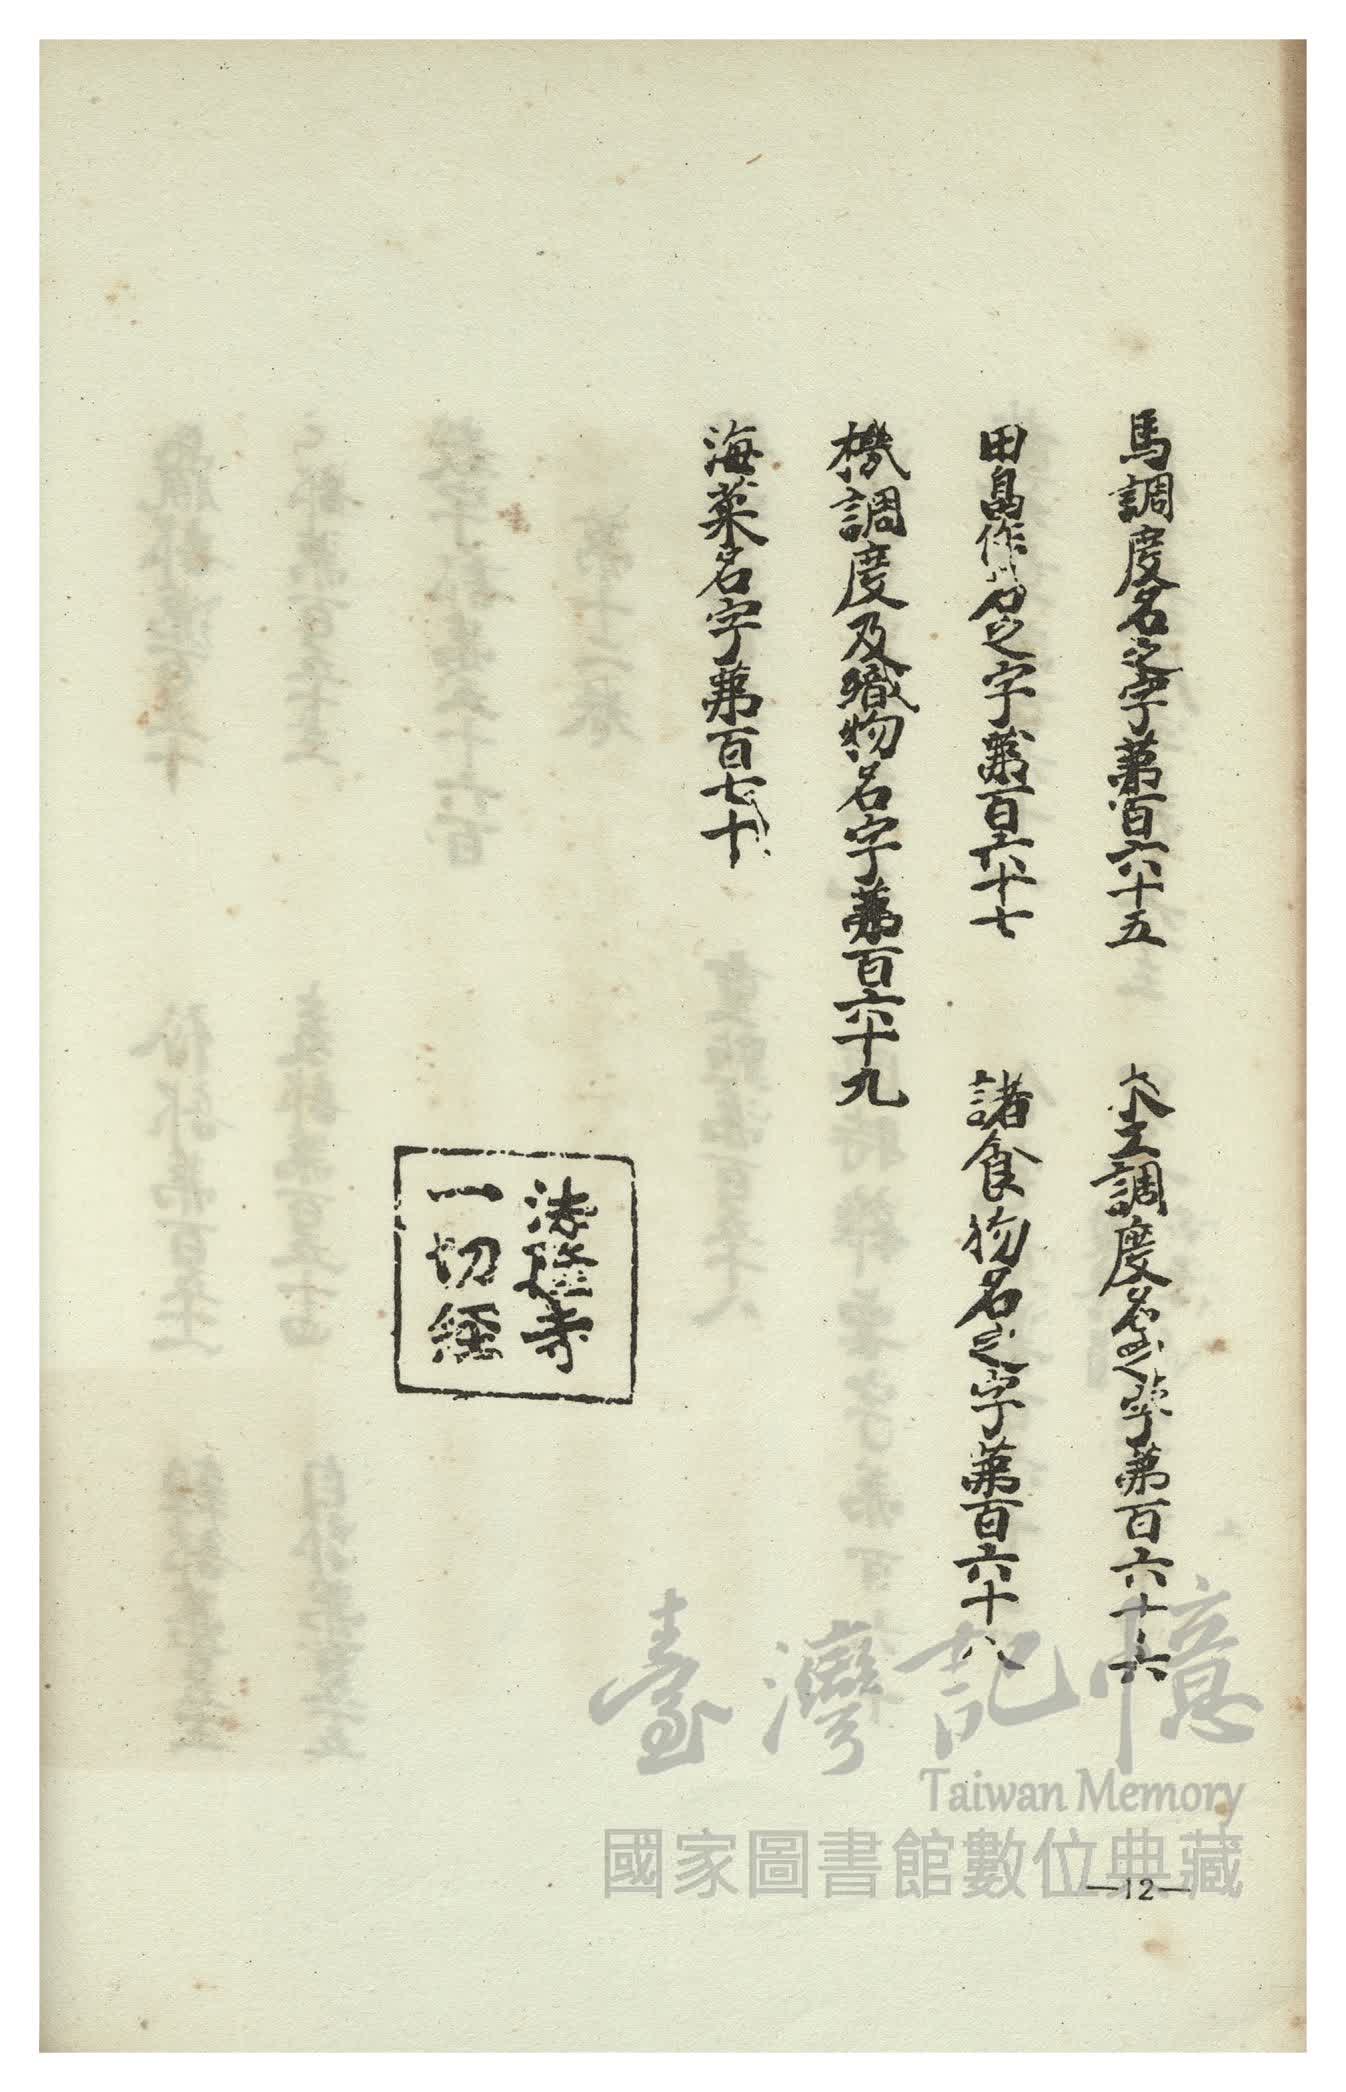 馬調度名之字第百六十五
木工調度名之字第百六十六
田畠作名之字第百六十七
諸食物名之字第百六十八
機調度及織物名字第百六十九
海菜名字第百七十
法隆寺
一切經
臺灣記憶
Taiwan Memory
國家圖書館數位典藏
—12—